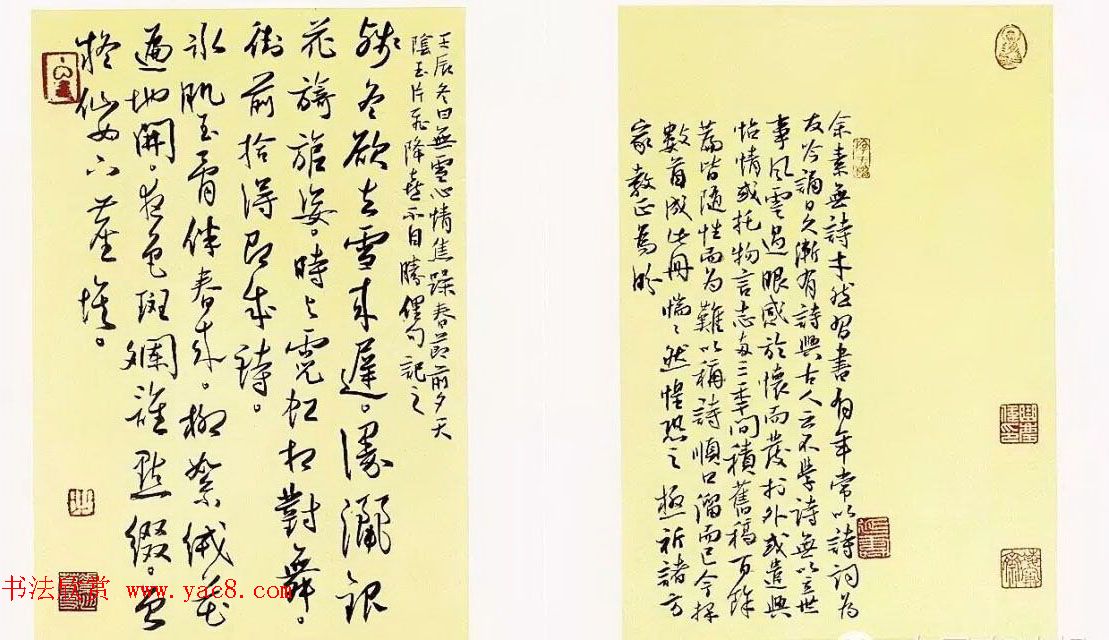 余素無詩才然習書有年常以詩詞為
友吟誦日久漸有詩興古人云不學詩無以立世
事風雲過眼感於懷而發於外或遣興
怡情或托物言志每三季間積舊稿百餘
篇皆隨性而為難以稱詩順口溜而已今擇
數首成此冊惴惴然惶恐之極祈諸方
家教正為盼
壬辰冬日無雪心情焦躁春節前夕天
陰玉片飛降喜不自勝俚句記之
殘冬欲去雪來遲。漫灑銀
花旖旎姿。時與霓虹相對舞。
街前拾得即成詩。
冰肌玉骨伴春來。柳絮絨花
遍地開。夜色斑斕誰點綴。
疑仙女下塵埃。
书法欣赏 www.yac8.com